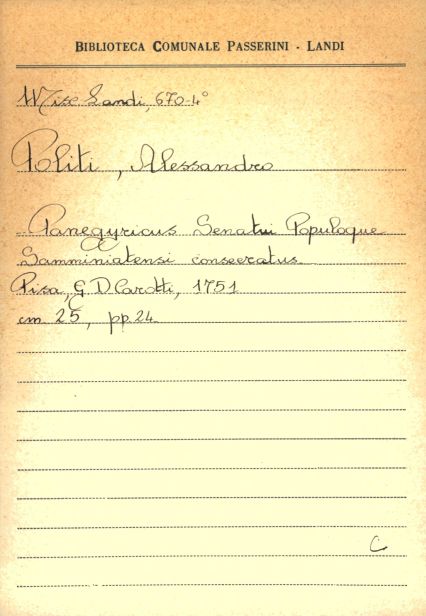 BIBLIOTECA COMUNALE PASSERINI - LANDI
Misc Landi, 670-4°
Politi, Alessandro
Panegyricus Senatui Populoque
Samminiatensi consecratus
Pisa, G D Carotti, 1751
cm 25, pp. 24
C